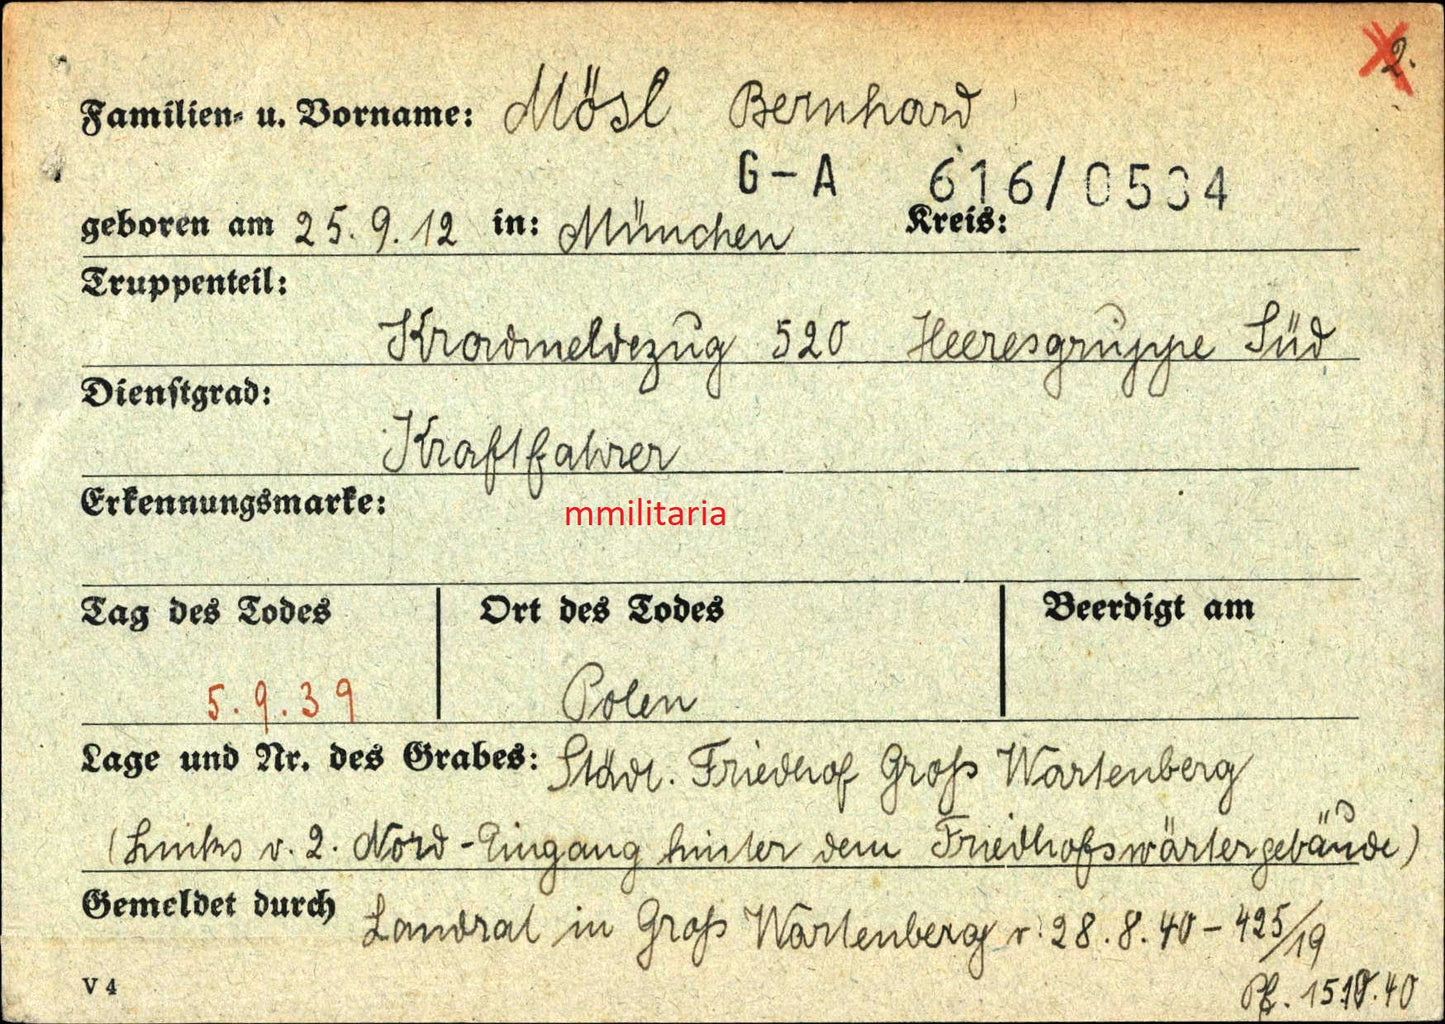 2.
Familien- u. Vorname: Mösl Bernhard
G-A 616/0534
geboren am 25.9.12 in: München Kreis:
Truppenteil:
Kradmeldezug 520 Heeresgruppe Süd
Dienstgrad:
Kraftfahrer
Erkennungsmarke:
mmilitaria
Tag des Todes Ort des Todes Beerdigt am
5.9.39 Polen
Lage und Nr. des Grabes: Städt. Friedhof Groß Wartenberg
(Links v. 2. Nord-Eingang hinter dem Friedhofswärtergebäude)
Gemeldet durch Landrat in Groß Wartenberg v. 28.8.40 - 425/19
V 4